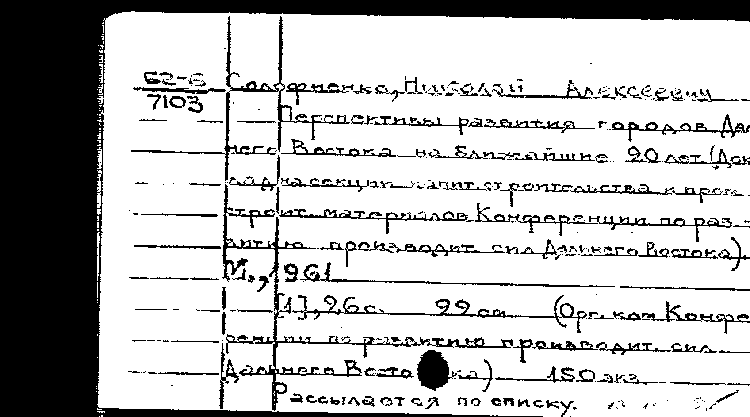 62-6 Солофненко, Николай Алексеевич
7103
Перспективы развития городов Дал
него Востока на ближайшие 20 лет (Док
лад на секции капит. строительства и пром
строит. материалов Конференции по раз-
витию производит. сил Дальнего Востока).
М., 1961
[1], 26 с. 22 см (Орг. ком Конфе
ренции по развитию производит. сил
Дальнего Восто ка) 150 экз.
Рассылается по списку.